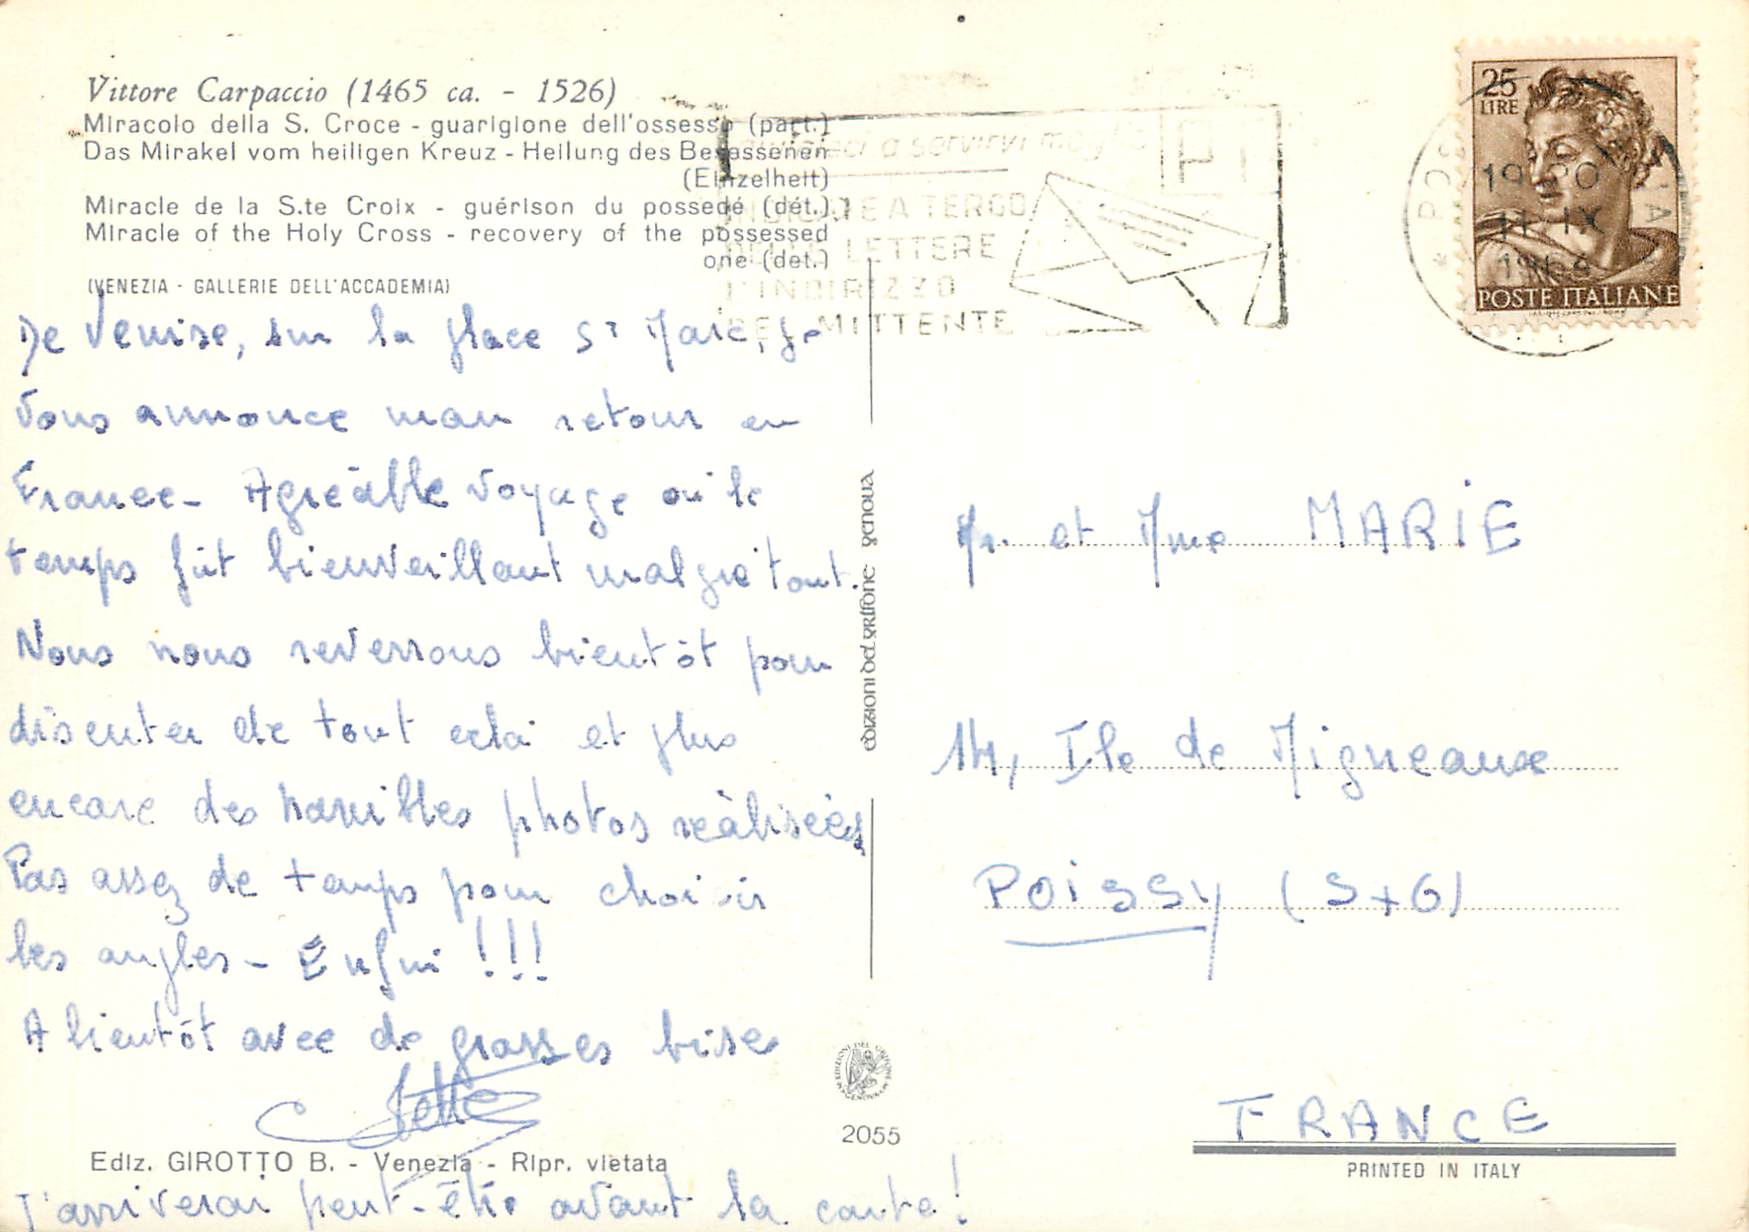 Vittore Carpaccio (1465 ca. - 1526)
Miracolo della S. Croce - guarigione dell'ossesso (part.)
Das Mirakel vom heiligen Kreuz - Heilung des Besessenen
(Einzelheit)
Miracle de la S.te Croix - guérison du possedé (dét.)
Miracle of the Holy Cross - recovery of the possessed
one (det.)
(VENEZIA - GALLERIE DELL'ACCADEMIA)
De Venise, sur la place St Marc, je
vous annonce mon retour en
France - Agréable voyage où le
temps fût bienveillant malgré tout.
Nous nous reverrons bientôt pour
discuter de tout cela et plus
encore des horribles photos réalisées,
Pas assez de temps pour choisir
les angles - Enfin !!!
A bientôt avec de grosses bises
J'arriverai peut-être avant la carte !
Ediz. GIROTTO B. - Venezia - Ripr. vietata
edizioni del grifone genova
EDIZIONI DEL GRIFONE GENOVA
2055
a servirvi
INDICATE A TERGO
LETTERE
L'INDIRIZZO
DEL MITTENTE
P T
25
LIRE
POSTE ITALIANE
11 IX
Mr. et Mme MARIE
14, Ile de Migneaux
POISSY (S+O)
FRANCE
PRINTED IN ITALY